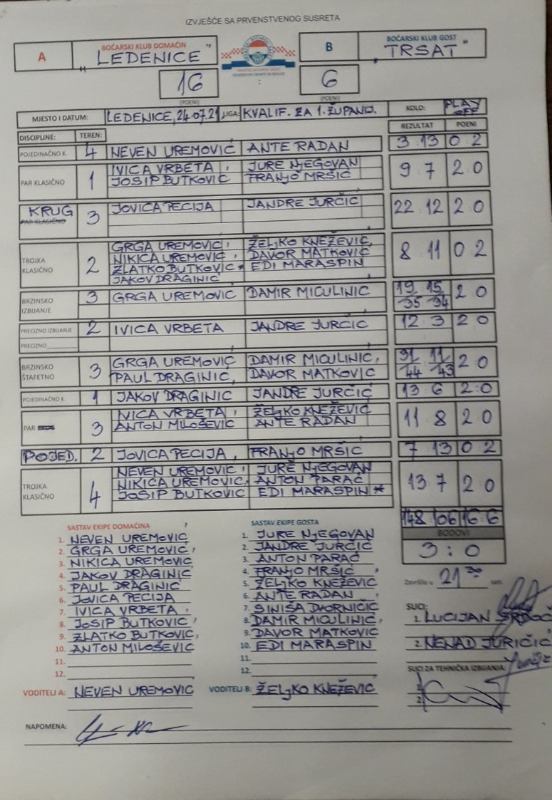 IZVJEŠĆE SA PRVENSTVENOG SUSRETA
A BOĆARSKI KLUB DOMAĆIN B BOĆARSKI KLUB GOST
"LEDENICE" "TRSAT"
16 6
(POENI) (POENI)
MJESTO I DATUM: LEDENICE, 24.07.21 LIGA: KVALIF. ZA 1. ŽUPANIJ. KOLO: PLAY OFF
DISCIPLINE: TEREN: REZULTAT POENI
POJEDINAČNO K. 4 NEVEN UREMOVIĆ ANTE RADAN 3 13 0 2
PAR KLASIČNO 1 IVICA VRBETA, JURE NJEGOVAN 9 7 2 0
JOSIP BUTKOVIĆ FRANJO MRŠIĆ
KRUG 3 JOVICA PECIJA JANDRE JURČIĆ 22 12 2 0
PAR KLASIČNO
TROJKA KLASIČNO 2 GRGA UREMOVIĆ, ŽELJKO KNEŽEVIĆ, 8 11 0 2
NIKICA UREMOVIĆ, DAVOR MATKOVIĆ
ZLATKO BUTKOVIĆ * EDI MARASPIN
JAKOV DRAGINIĆ
BRZINSKO IZBIJANJE 3 GRGA UREMOVIĆ DAMIR MICULINIĆ 19/35 15/34 2 0
PRECIZNO IZBIJANJE 2 IVICA VRBETA JANDRE JURČIĆ 12 3 2 0
PRECIZNO
BRZINSKO ŠTAFETNO 3 GRGA UREMOVIĆ DAMIR MICULINIĆ, 2 0
PAUL DRAGINIĆ, DAVOR MATKOVIĆ 44 43
POJEDINAČNO K. 1 JAKOV DRAGINIĆ JANDRE JURČIĆ 13 6 2 0
PAR 3 IVICA VRBETA, ŽELJKO KNEŽEVIĆ 11 8 2 0
ANTON MILOŠEVIĆ ANTE RADAN
POJED. 2 JOVICA PECIJA, FRANJO MRŠIĆ 7 13 0 2
TROJKA KLASIČNO 4 NEVEN UREMOVIĆ, JURE NJEGOVAN 13 7 2 0
NIKICA UREMOVIĆ, ANTON PARAĆ
JOSIP BUTKOVIĆ EDI MARASPIN *
148 106 16 6
SASTAV EKIPE DOMAĆINA SASTAV EKIPE GOSTA BODOVI
3 : 0
1. NEVEN UREMOVIĆ 1. JURE NJEGOVAN
2. GRGA UREMOVIĆ, 2. JANDRE JURČIĆ
3. NIKICA UREMOVIĆ 3. ANTON PARAĆ
4. JAKOV DRAGINIĆ 4. FRANJO MRŠIĆ
5. PAUL DRAGINIĆ 5. ŽELJKO KNEŽEVIĆ Završio u 21 30 sati.
6. JOVICA PECIJA 6. ANTE RADAN
7. IVICA VRBETA 7. SINIŠA DVORNIČIĆ SUCI:
8. JOSIP BUTKOVIĆ 8. DAMIR MICULINIĆ, 1. LUCIJAN SRDOČ
9. ZLATKO BUTKOVIĆ 9. DAVOR MATKOVIĆ
10. ANTON MILOŠEVIĆ 10. EDI MARASPIN 2. NENAD JURIČIĆ
11. 11.
12. 12. SUCI ZA TEHNIČKA IZBIJANJA:
VODITELJ A: NEVEN UREMOVIĆ VODITELJ B: ŽELJKO KNEŽEVIĆ 1.
2.
NAPOMENA: